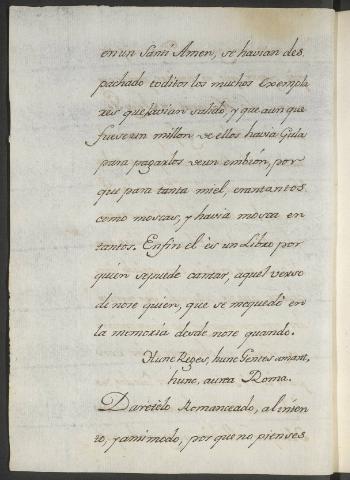 en un Santi Amen, se havian des
pachado toditos los muchos Exempla
res que havian salido, y que aunque
fuese un millon de ellos havia Gula
para pagarlos de un embion, por
que para tanta miel, eran tantos
como moscas, y havia mosca en
tantos. En fin el es un Libro por
quien se puede cantar, aquel verso
de no se quien, que se me quedè en
la memoria desde no se quando.
Hunc Reges, hunc Gentes amant,
hunc, aurea Roma.
Daretelo Romanceado, al inson
zo, y a mi modo, por que no pienses